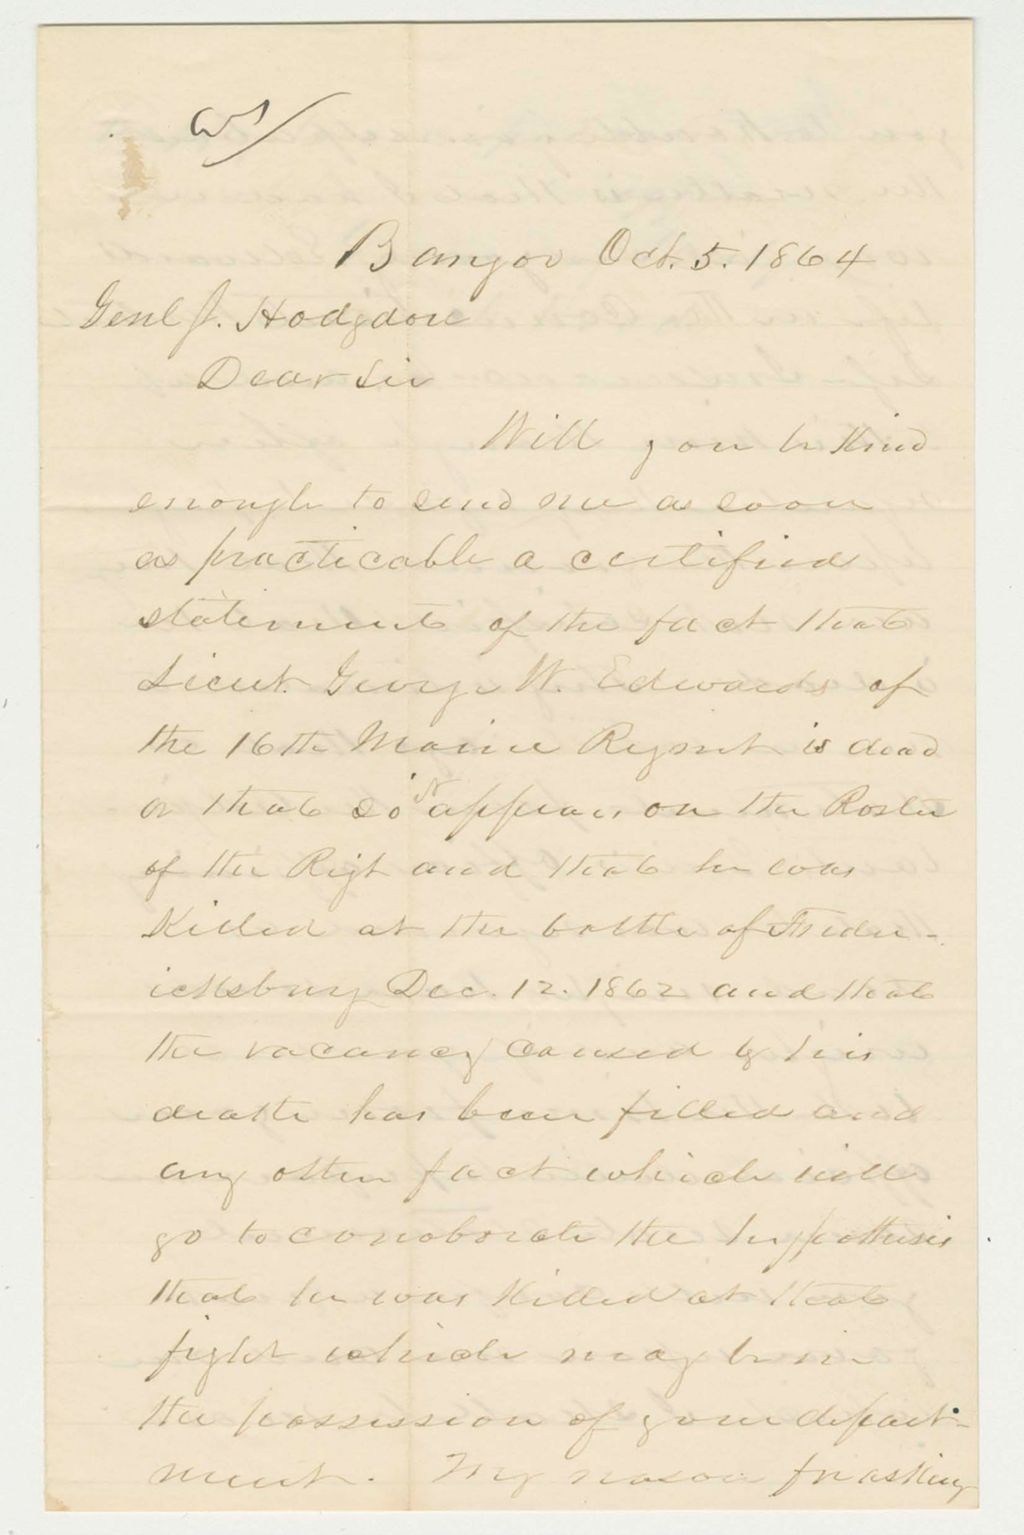 Bangor Oct. 5. 1864
Genl J. Hodgdon
Dear Sir
Will you be kind
enough to send me as soon
as practicable a certified
statement of the fact that
Lieut. George W. Edwards of
the 16th Maine Regmt is dead
or that so it appears on the Roster
of the Rigt and that he was
Killed at the battle of Freder-
icksburg Dec. 12. 1862 and that
the vacancy caused by his
death has been filled and
any other fact which will
go to corroborate the hypothesis
that he was killed at that
fight which may be in
the possession of your depart-
ment. My reason for asking